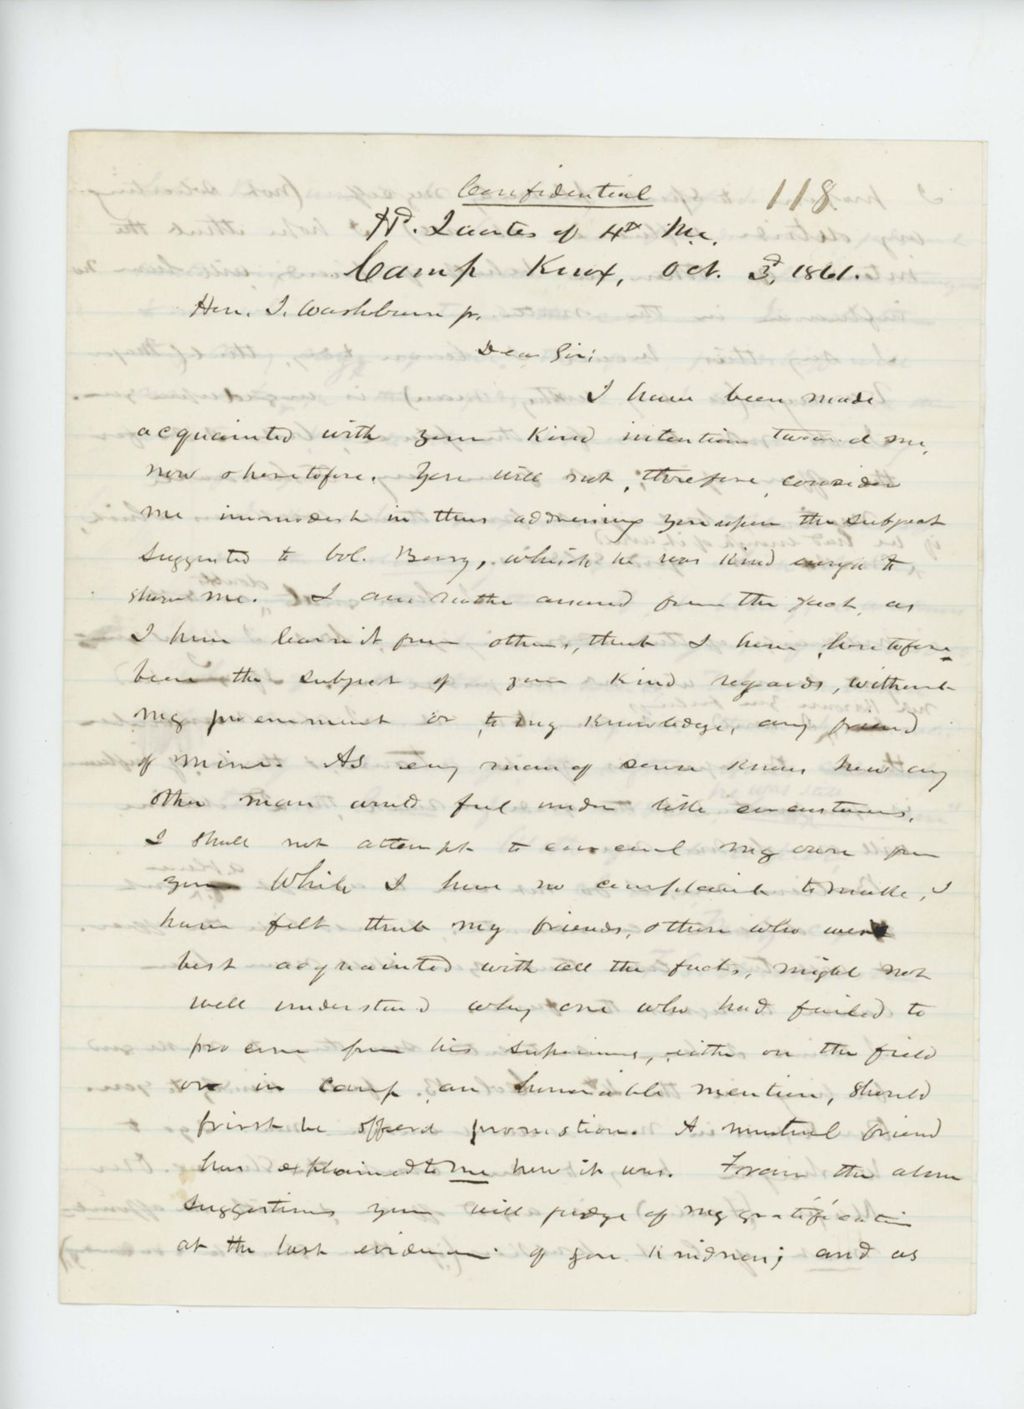 Confidential
118
Hd. Quartes of 4th Me.
Camp Knox, Oct. 3d, 1861.
Hon. I. Washburn jr.
Dear Sir:
I have been made
acquainted with your kind intention toward me,
now & heretofore. You will not, therefore, consider
me immodest in thus addressing you upon the subject
suggested to Col. Berry, which he was kind enough to
show me. I am rather assured from the fact, as
doubt
I have learnt from others, that I have heretofore
been the subject of your kind regards, without
my procurement or, to my knowledge, any friend
of mine. As any man of sense knows how any
other man would feel under like circumstances,
I shall not attempt to conceal my own from
you. While I have no complaint to make, I
have felt that my friends, & those who were
best acquainted with all the facts, might not
well understand why one who had failed to
procure from his superiors, either on the field
or in camp, an honorable mention, should
first be offered promotion. A mutual friend
has explained to me how it was. From the above
suggestions you will judge of my gratification
at the last evidence of your kindness; and as